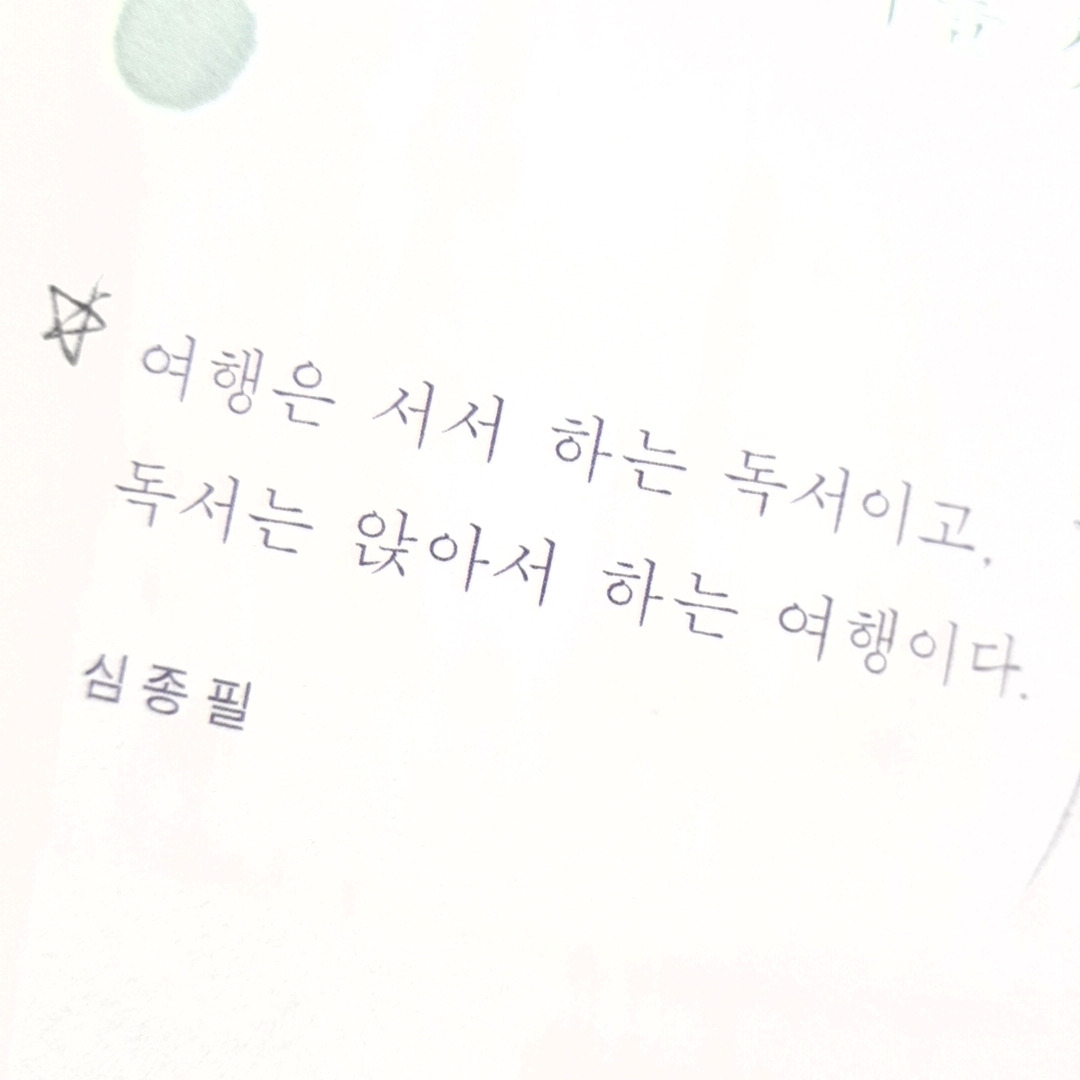 여행은 서서 하는 독서이고,
독서는 앉아서 하는 여행이다.
심종필